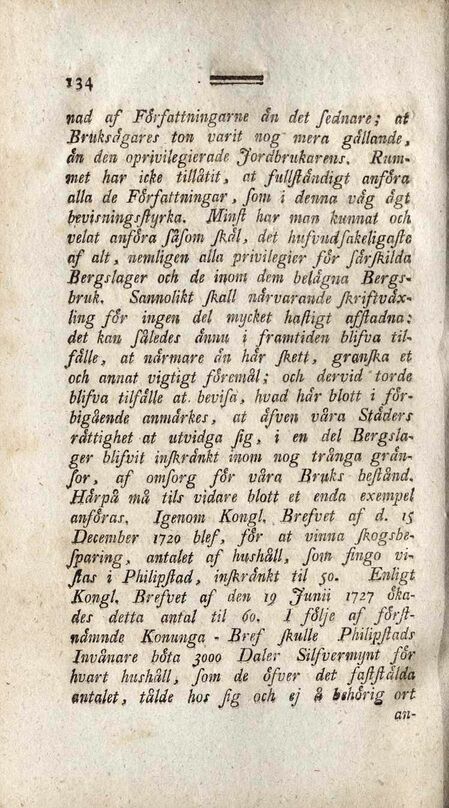 134
nad af Författningarne än det sednare; at
Bruksägares ton varit nog mera gällande,
än den oprivilegierade Jordbrukarens. Rum-
met har icke tillåtit, at fullständigt anföra
alla de Författningar, som i denna väg ägt
bevisningsstyrka. Minst har man kunnat och
velat anföra såsom skäl, det hufvudsakeligaste
af alt, nemligen alla privilegier för särskilda
Bergslager och de inom dem belägna Bergs-
bruk. Sannolikt skall närvarande skriftväx-
ling för ingen del mycket hastigt afstadna:
det kan således ännu i framtiden blifva til-
fälle, at närmare än här skett, granska et
och annat vigtigt föremål; och dervid torde
blifva tilfälle at bevisa, hvad här blott i för-
bigående anmärkes, at äfven våra Städers
rättighet at utvidga sig, i en del Bergsla-
ger blifvit inskränkt inom nog trånga grän-
sor, af omsorg för våra Bruks bestånd.
Härpå må tils vidare blott et enda exempel
anföras. Igenom Kongl. Brefvet af d. 15
December 1720 blef, för at vinna skogsbe-
sparing, antalet af hushåll, som fingo vi-
stas i Philipstad, inskränkt til 50. Enligt
Kongl. Brefvet af den 19 Junii 1727 öka-
des detta antal til 60. I följe af först-
nämnde Konunga-Bref skulle Philipstads
Invånare böta 3000 Daler Silfvermynt för
hvart hushåll, som de öfver det faststälda
antalet, tålde hos sig och ej å behörig ort
an-